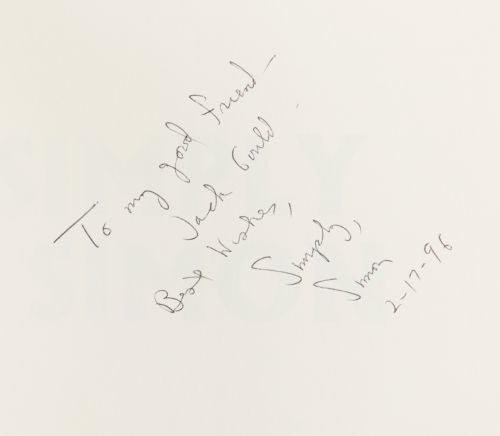 To my good friend –
Jack Gould.
Best Wishes,
Simply,
Simon
2-17-96
SIMPLY
SIMON